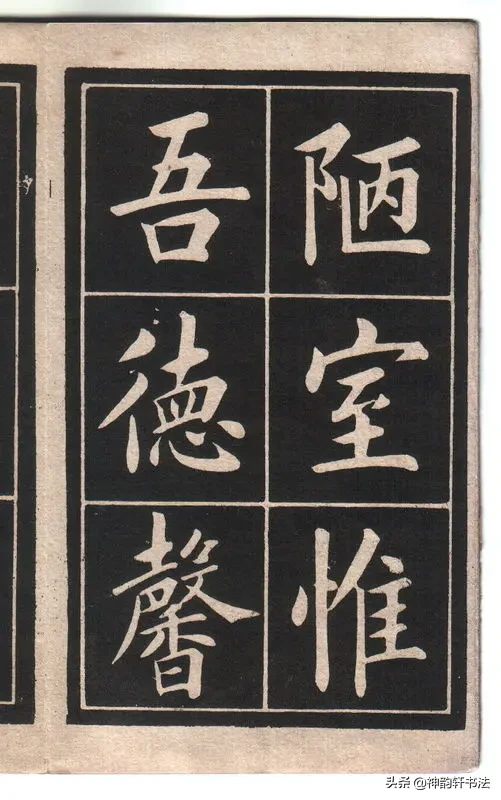 陋室惟
吾德馨
头条 @神韵轩书法